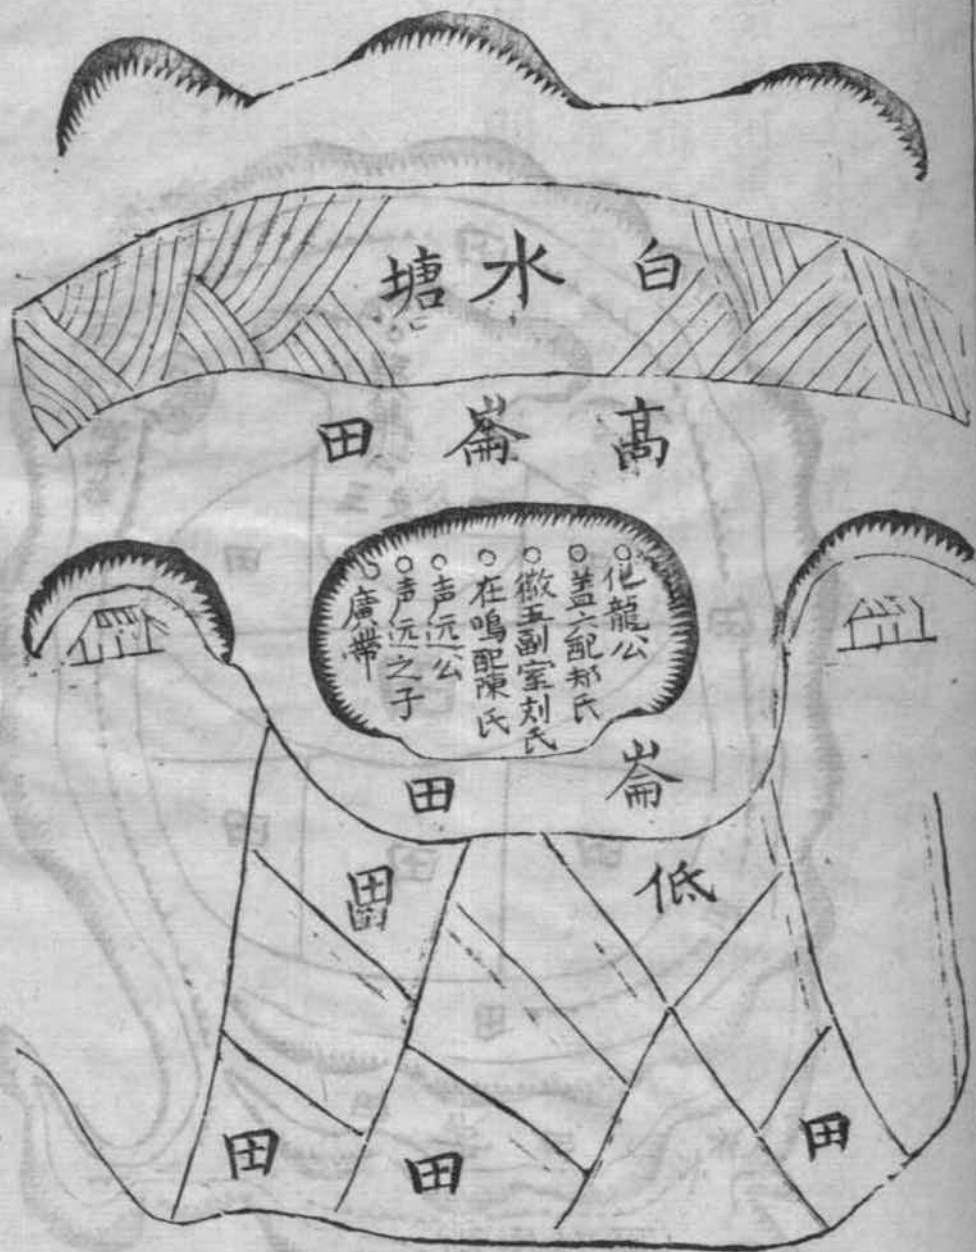 白水塘
高崙田
化龍公
蓋六配郝氏
徽五副室刘氏
在鳴配陳氏
声远公
声远之子
廣帶
崙田
低田
田
田
田